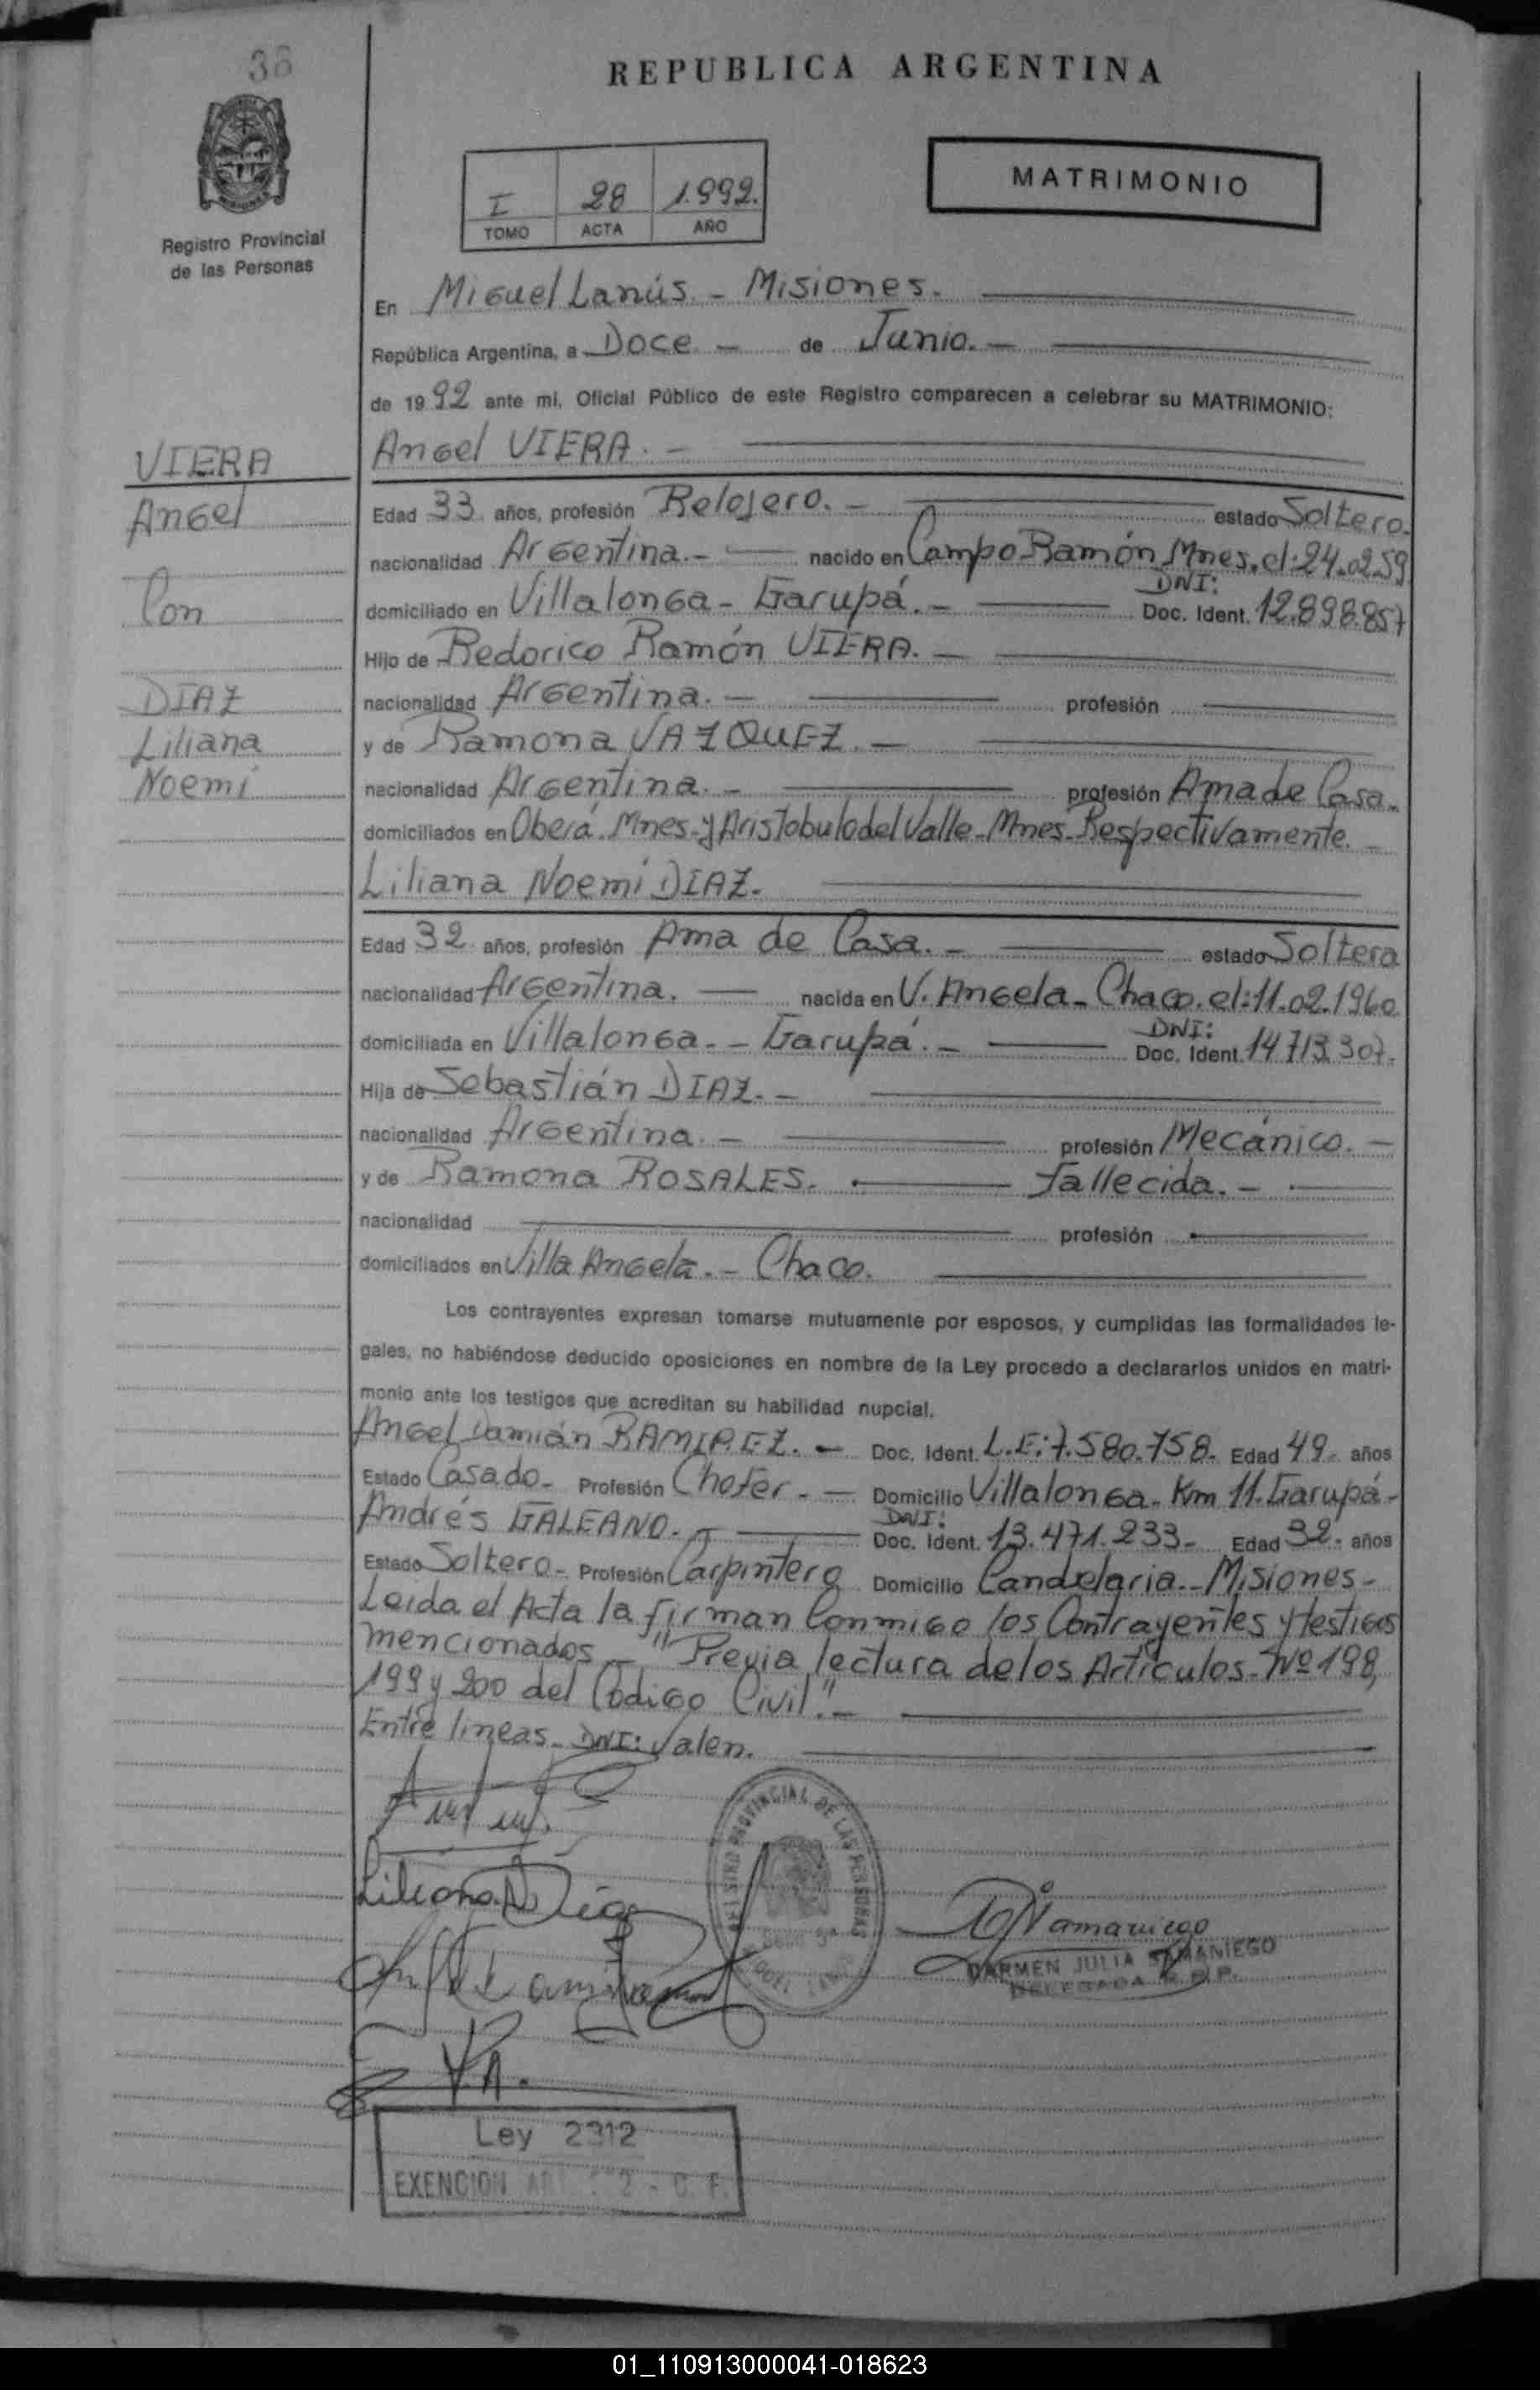 36
REPUBLICA ARGENTINA
MATRIMONIO
I 28 1.992.
TOMO ACTA AÑO
Registro Provincial
de las Personas
En Miguel Lanús. - Misiones.
República Argentina, a Doce. - de Junio. -
de 1992 ante mi, Oficial Público de este Registro comparecen a celebrar su MATRIMONIO:
VIERA
Angel
Con
DIAZ
Liliana
Noemí
Angel VIERA. -
Edad 33 años, profesión Relojero. - estado Soltero.
nacionalidad Argentina. - nacido en Campo Ramón Mnes. el: 24.02.59
DNI:
domiciliado en Villalonga - Garupá. - Doc. Ident. 12.898.857
Hijo de Redorico Ramón VIERA. -
nacionalidad Argentina. - profesión
y de Ramona VAZQUEZ. -
nacionalidad Argentina. - profesión Ama de Casa.
domiciliados en Oberá. Mnes. y Aristobulo del Valle - Mnes. Respectivamente. -
Liliana Noemí DIAZ.
Edad 32 años, profesión Ama de Casa. - estado Soltera
nacionalidad Argentina. nacida en V. Angela - Chaco. el: 11.02.1960
DNI:
domiciliada en Villalonga. - Garupá. - Doc. Ident. 14.713.307.
Hija de Sebastián DIAZ. -
nacionalidad Argentina. - profesión Mecánico. -
y de Ramona ROSALES. Fallecida. -
nacionalidad profesión
domiciliados en Villa Angela. - Chaco.
Los contrayentes expresan tomarse mutuamente por esposos, y cumplidas las formalidades le-
gales, no habiéndose deducido oposiciones en nombre de la Ley procedo a declararlos unidos en matri-
monio ante los testigos que acreditan su habilidad nupcial.
Angel Damián RAMIREZ. - Doc. Ident. L.E: 7.580.758. Edad 49 años
Estado Casado - Profesión Chofer. - Domicilio Villalonga - Km 11. Garupá -
DNI:
Andrés GALEANO. - Doc. Ident. 13.471.233 - Edad 32. años
Estado Soltero - Profesión Carpintero Domicilio Candelaria. - Misiones -
Leida el Acta la firman Conmigo los Contrayentes y testigos
mencionados - "Previa lectura de los Artículos - Nº 198,
199 y 200 del Codigo Civil". -
Entre lineas. DNI: Valen.
REGISTRO PROVINCIAL DE LAS PERSONAS
Liliana N. Díaz
Samaniego
CARMEN JULIA SAMANIEGO
DELEGADA R. P. P.
Ley 2312
EXENCION
C. F.
01_110913000041-018623